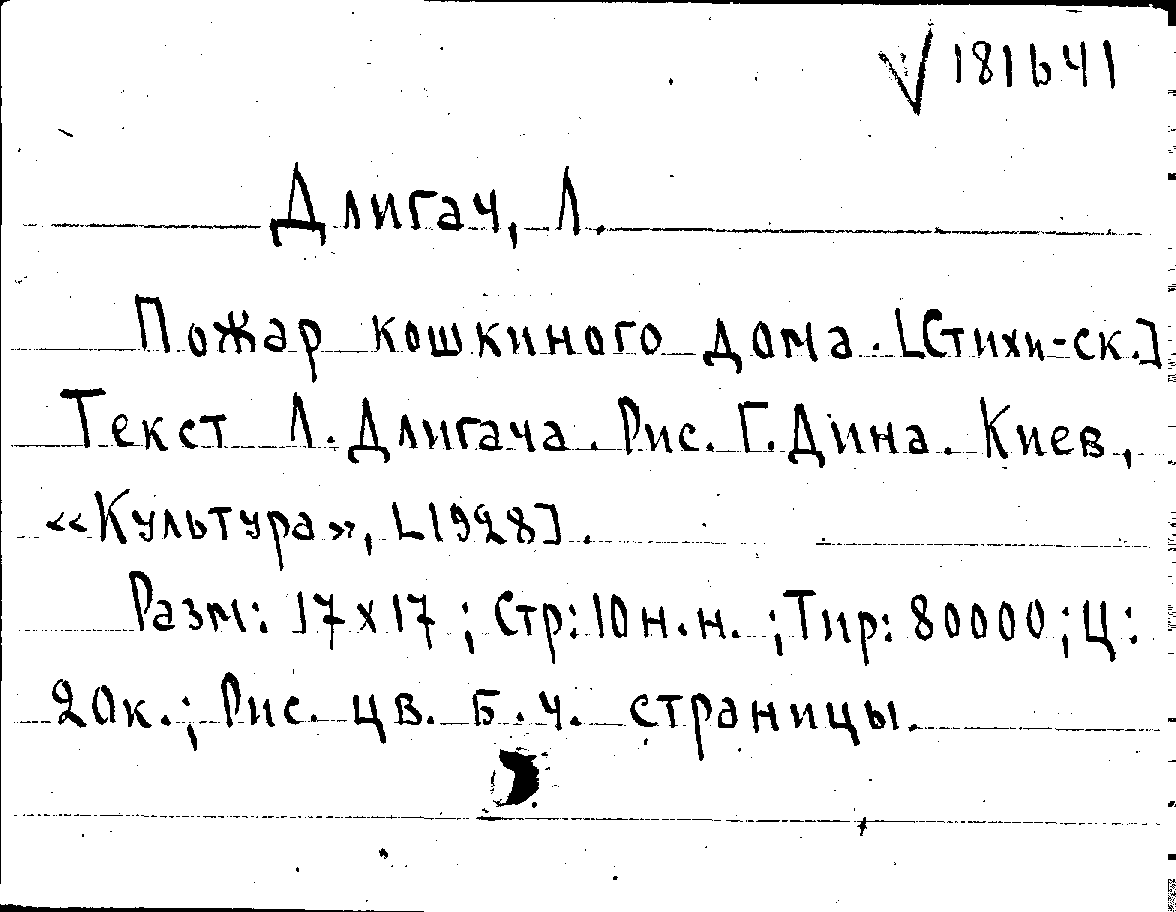 √181641
Длигач, Л.
Пожар кошкиного дома. [Стихи-ск.]
Текст Л. Длигача. Рис. Г. Дина. Киев,
«Культура», [1928].
Разм: 17х17; Стр: 10 н.н.; Тир: 80000; Ц:
20к.; Рис. цв. Б.ч. страницы.